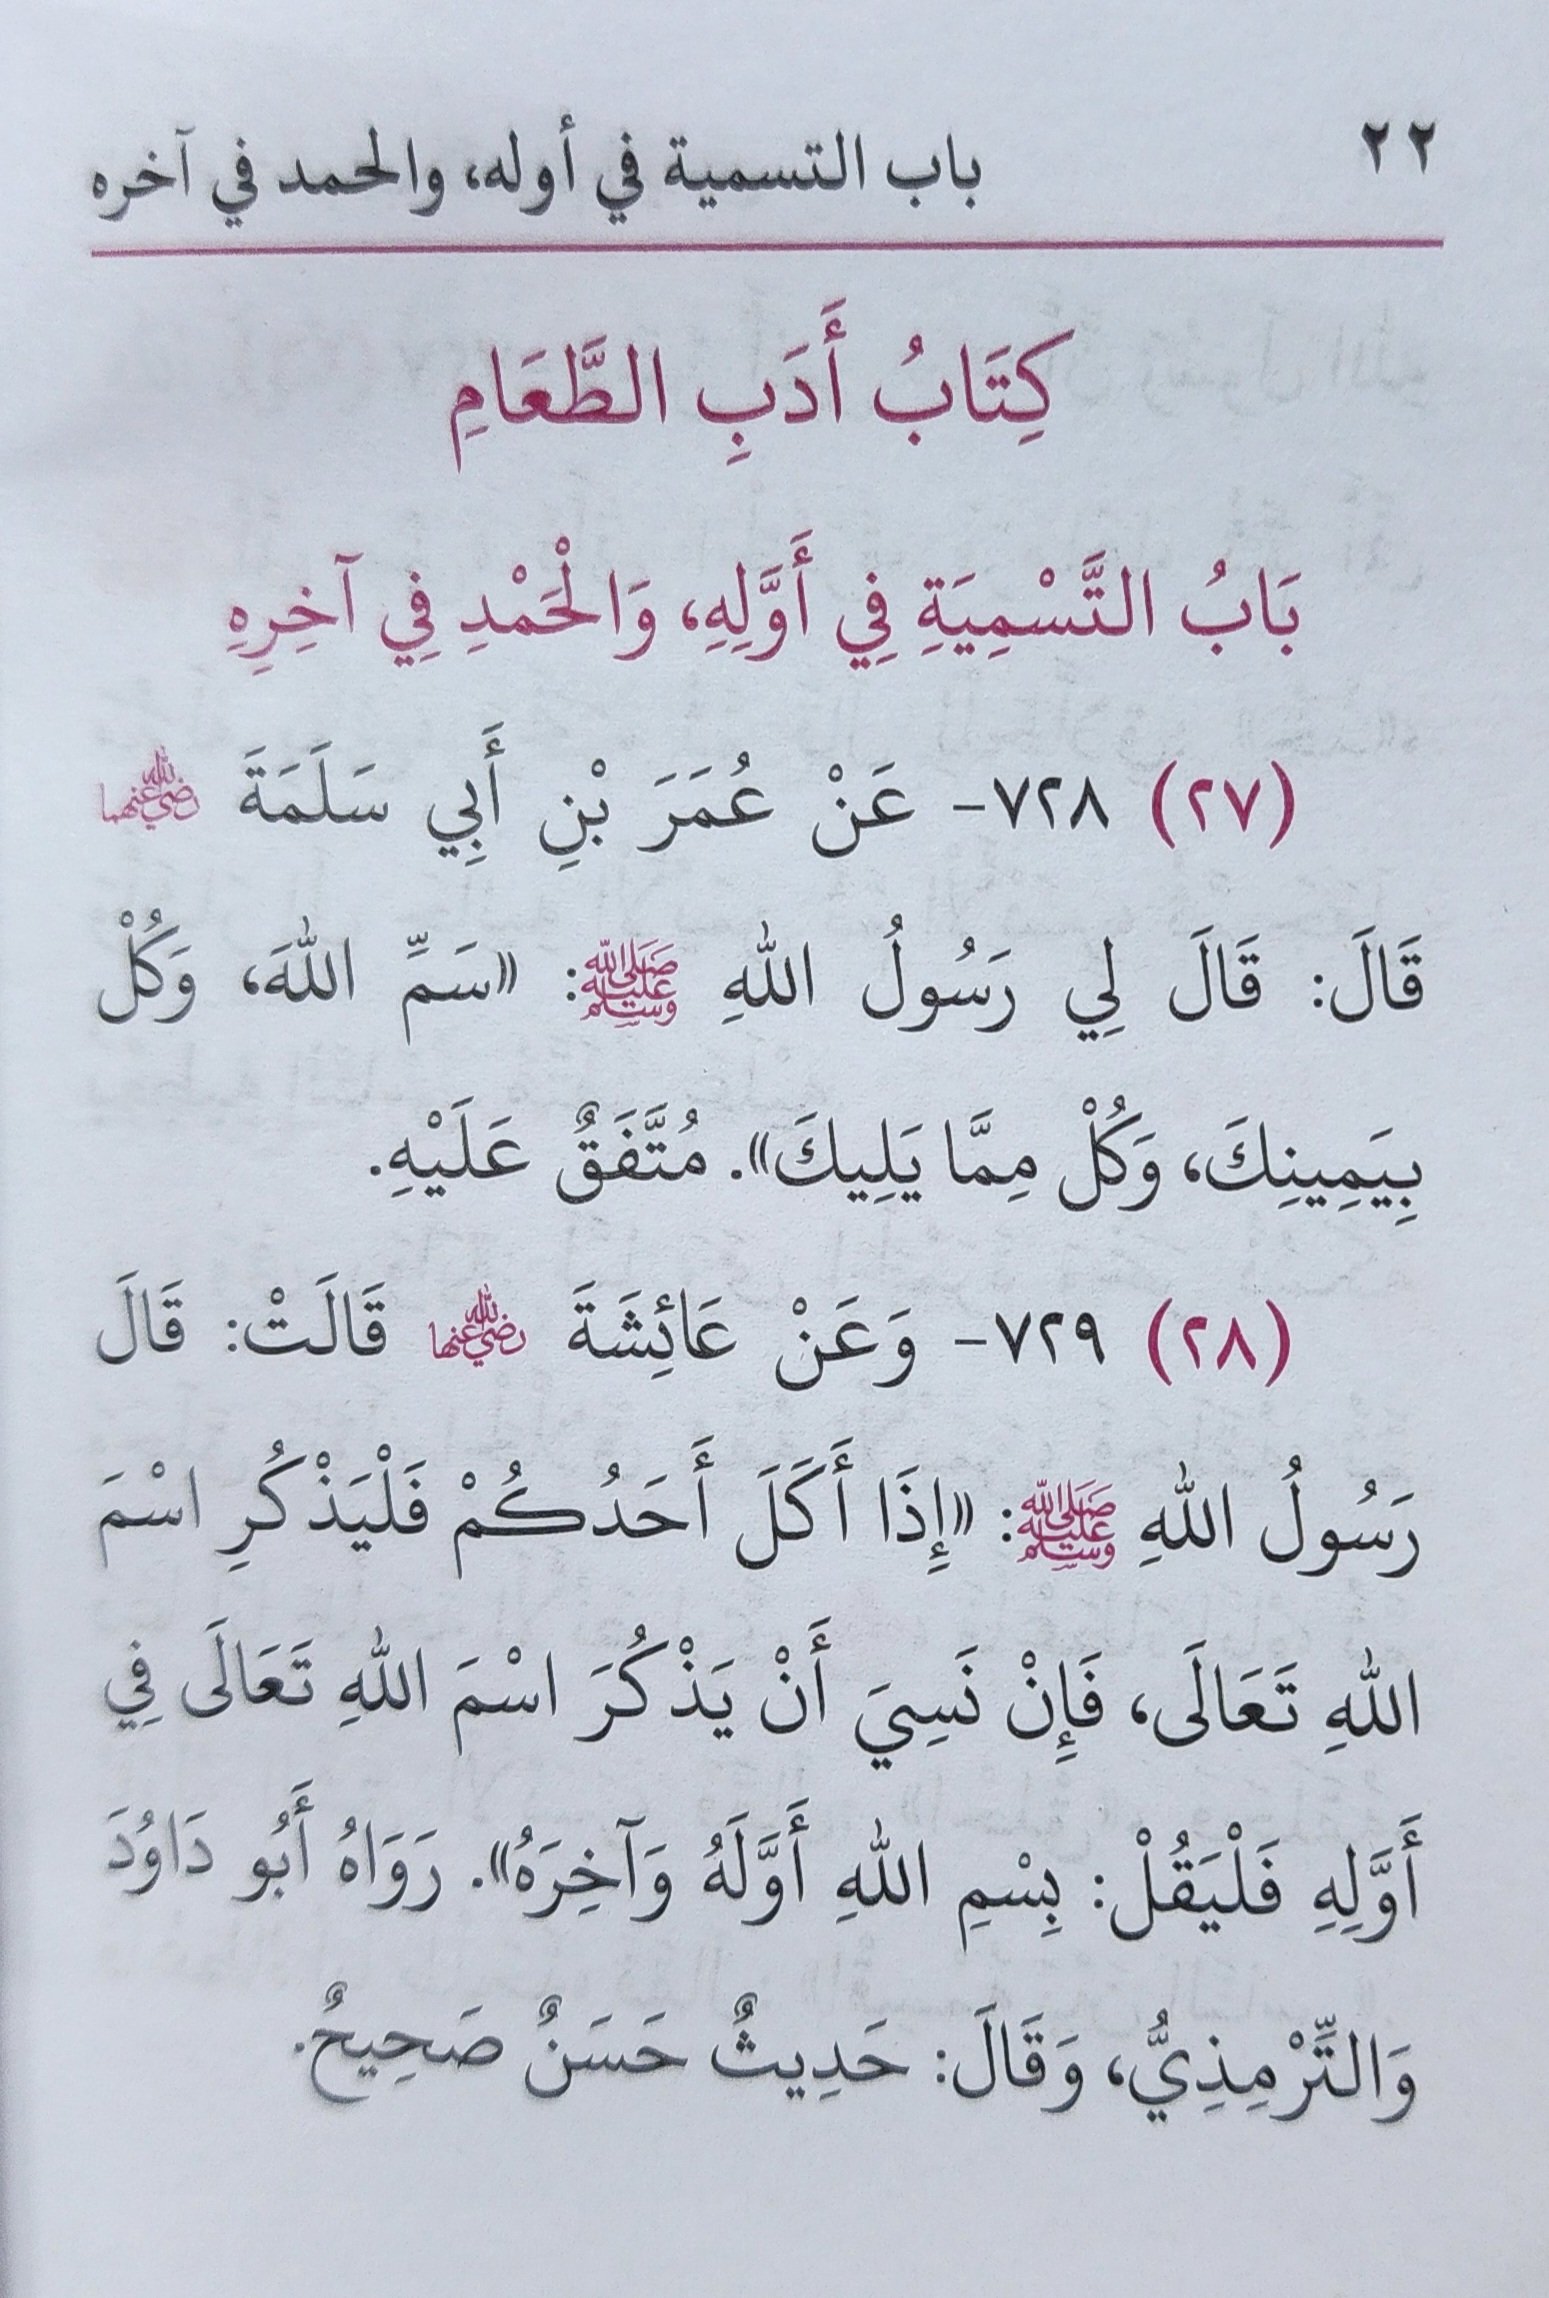 ٢٢ باب التسمية في أوله، والحمد في آخره
كِتَابُ أَدَبِ الطَّعَامِ
بَابُ التَّسْمِيَةِ فِي أَوَّلِهِ، وَالْحَمْدِ فِي آخِرِهِ
(٢٧) ٧٢٨- عَنْ عُمَرَ بْنِ أَبِي سَلَمَةَ رضي الله عنهما
قَالَ: قَالَ لِي رَسُولُ اللهِ ﷺ: «سَمِّ اللهَ، وَكُلْ
بِيَمِينِكَ، وَكُلْ مِمَّا يَلِيكَ». مُتَّفَقٌ عَلَيْهِ.
(٢٨) ٧٢٩- وَعَنْ عَائِشَةَ رضي الله عنها قَالَتْ: قَالَ
رَسُولُ اللهِ ﷺ: «إِذَا أَكَلَ أَحَدُكُمْ فَلْيَذْكُرِ اسْمَ
اللهِ تَعَالَى، فَإِنْ نَسِيَ أَنْ يَذْكُرَ اسْمَ اللهِ تَعَالَى فِي
أَوَّلِهِ فَلْيَقُلْ: بِسْمِ اللهِ أَوَّلَهُ وَآخِرَهُ». رَوَاهُ أَبُو دَاوُدَ
وَالتِّرْمِذِيُّ، وَقَالَ: حَدِيثٌ حَسَنٌ صَحِيحٌ.